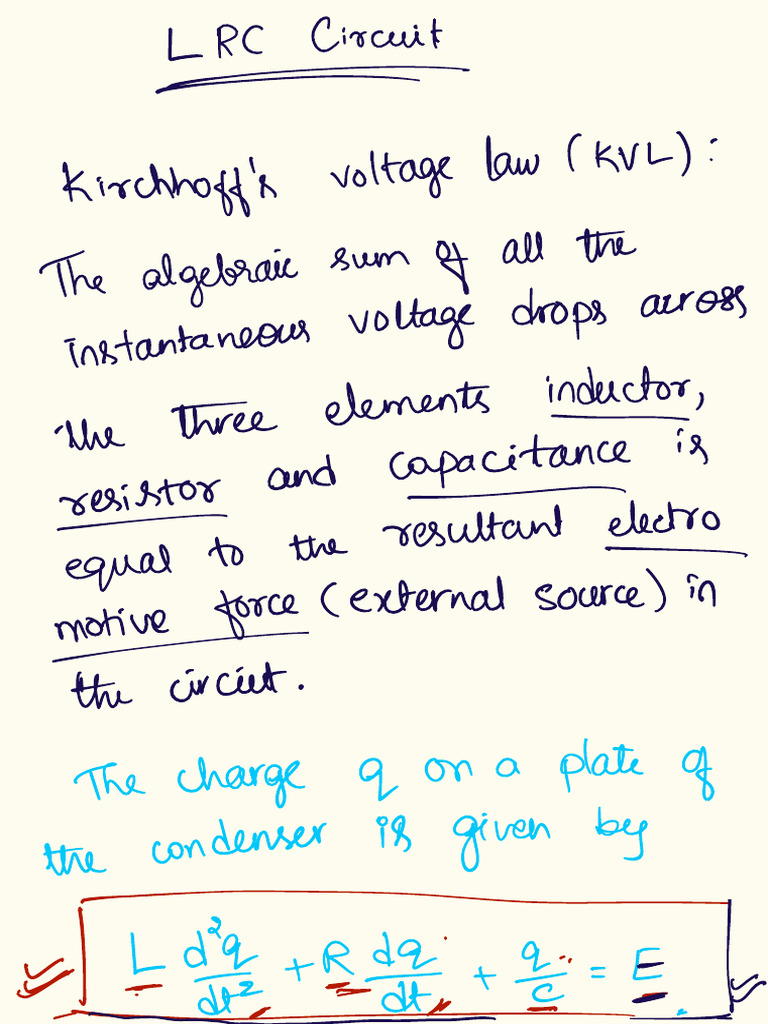 LRC Circuit
Kirchhoff's voltage law (KVL):
The algebraic sum of all the
instantaneous voltage drops across
the three elements inductor,
resistor and capacitance is
equal to the resultant electro
motive force (external source) in
the circiut.
The charge q on a plate of
the condenser is given by
L d²q/dt² + R dq/dt + q/C = E.